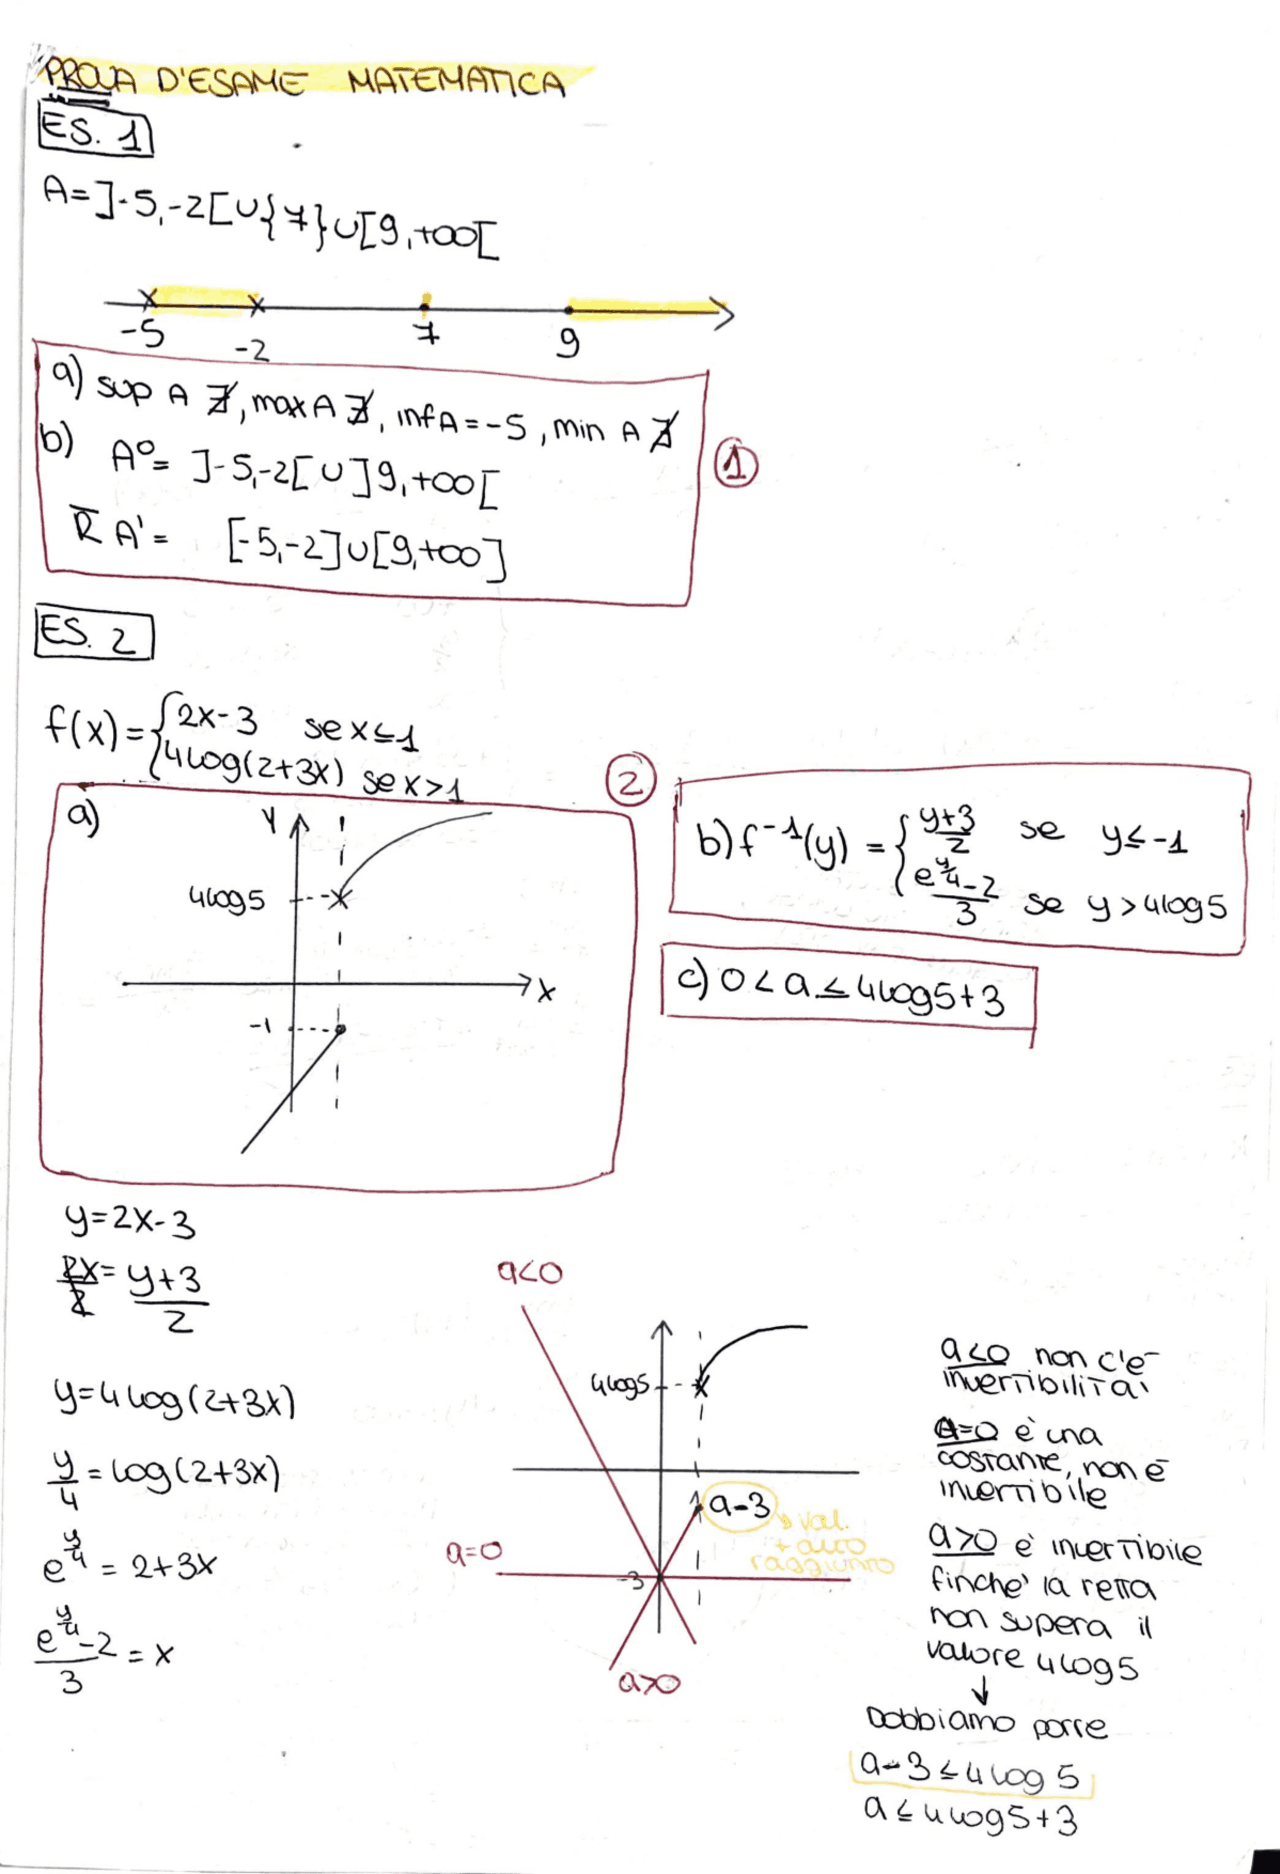 PROVA D'ESAME MATEMATICA
ES. 1
A=]-5,-2[∪{7}∪[9,+∞[
-5 -2 7 9
a) sup A ∄, max A ∄, inf A = -5, min A ∄
b) A° = ]-5,-2[ ∪ ]9,+∞[
R̄ A' = [-5,-2]∪[9,+∞]
1
ES. 2
f(x) = { 2x-3 se x≤1
4log(2+3x) se x>1
2
a)
y
4log5
x
-1
b) f⁻¹(y) = { (y+3)/2 se y≤-1
(e^(y/4)-2)/3 se y>4log5
c) 0<a≤4log5+3
y=2x-3
2x/2 = (y+3)/2
y=4log(2+3x)
y/4 = log(2+3x)
e^(y/4) = 2+3x
(e^(y/4)-2)/3 = x
a<0
4log5
a-3
val.
+ alto
raggiunto
a=0
-3
a>0
a<0 non c'è
invertibilità
a=0 è una
costante, non è
invertibile
a>0 è invertibile
finché la retta
non supera il
valore 4log5
↓
Dobbiamo porre
a-3≤4log5
a≤4log5+3